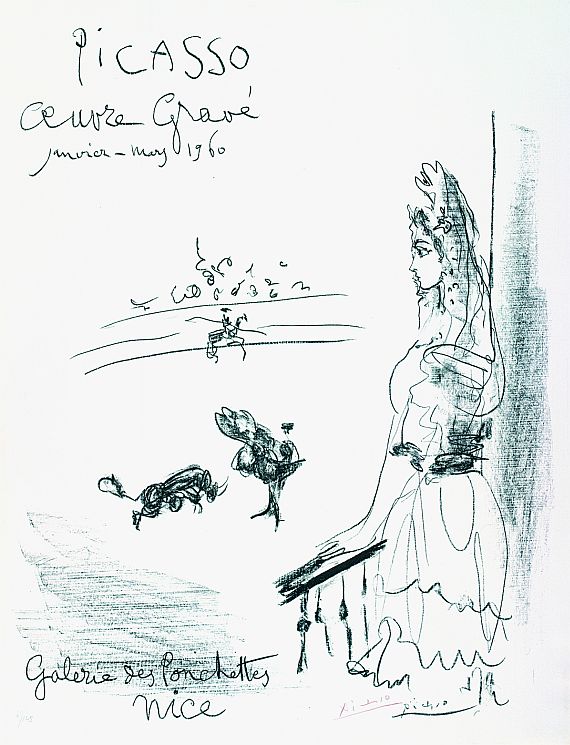 PiCASSO
Œuvre Gravé
janvier - mars 1960
Galerie des Ponchettes
Nice
Picasso
Picasso